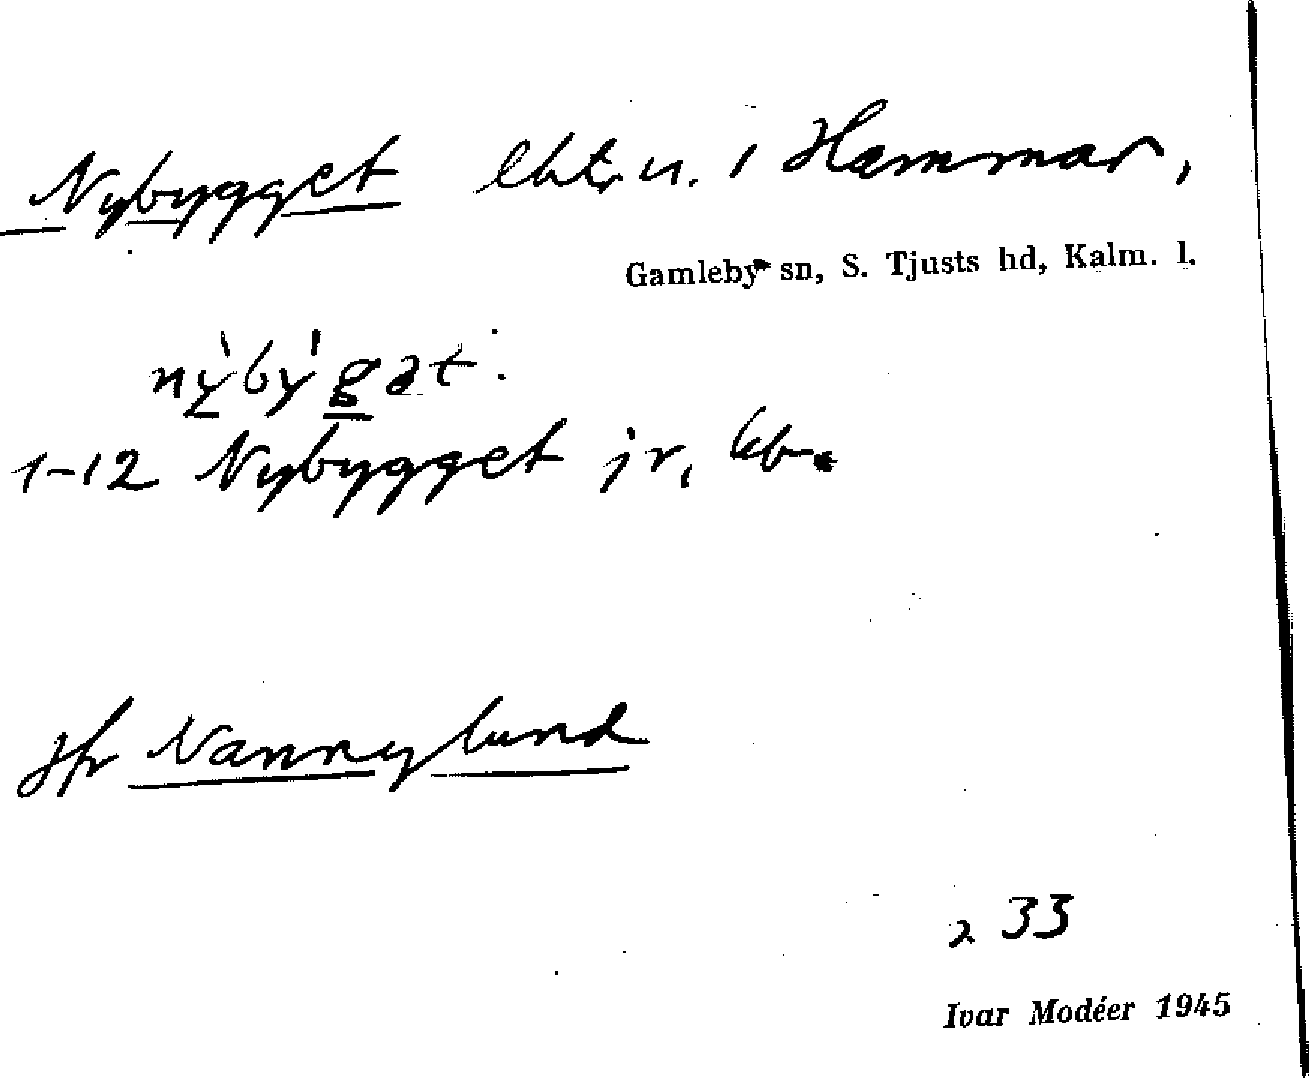 Nybygget lht, u. i Hammar,
Gamleby sn, S. Tjusts hd, Kalm. l.
nỳbý'gət.
1-12 Nybygget jr, kb.
Jfr Nannylund
2 33
Ivar Modéer 1945